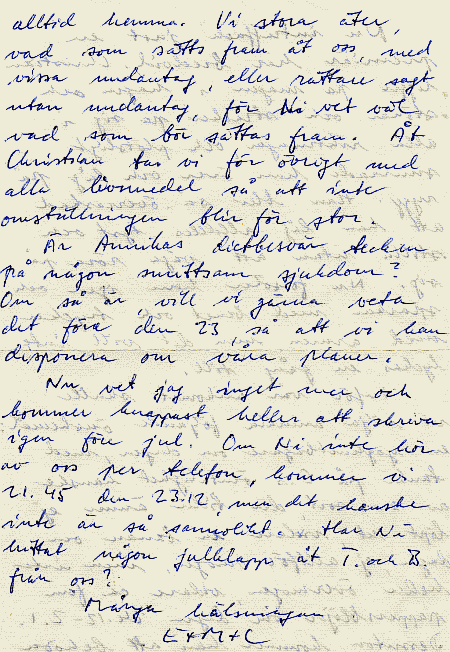 alltid hemma. Vi stora äter,
vad som sätts fram åt oss, med
vissa undantag, eller rättare sagt
utan undantag, för Ni vet väl
vad som bör sättas fram. Åt
Christian tar vi för övrigt med
alla livsmedel så att inte
omställningen blir för stor.
Är Annikas dietbesvär tecken
på någon smittsam sjukdom?
Om så är, vill vi gärna veta
det före den 23, så att vi kan
disponera om våra planer.
Nu vet jag inget mer och
kommer knappast heller att skriva
igen före jul. Om Ni inte hör
av oss per telefon, kommer vi
21.45 den 23.12, men det kanske
inte är så sannolikt. Har Ni
hittat någon julklapp åt T. och B.
från oss?
Många hälsningar
E+M+C